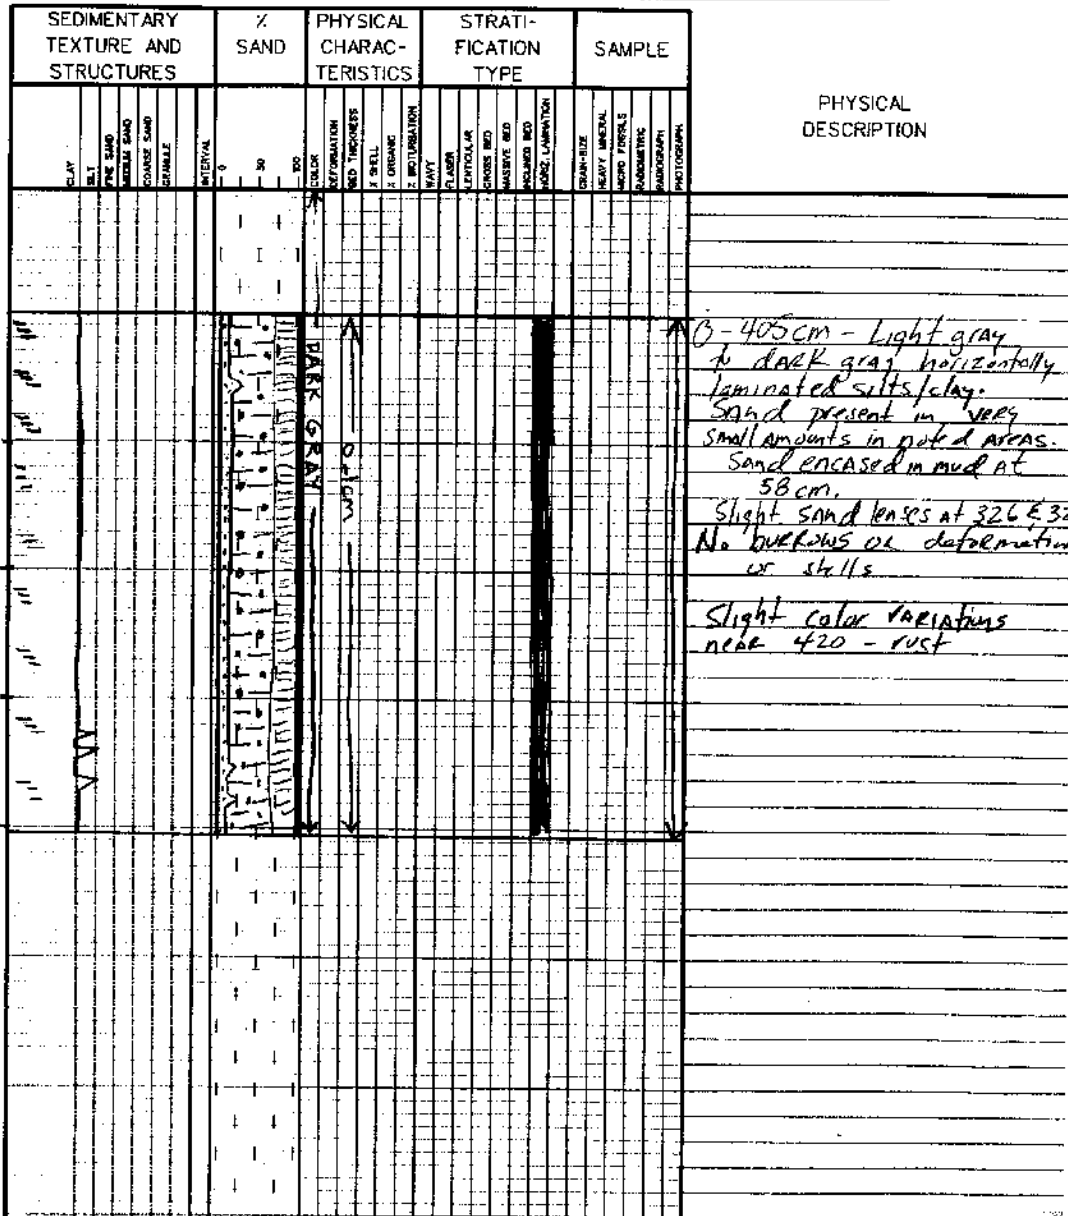 SEDIMENTARY
TEXTURE AND
STRUCTURES
%
SAND
PHYSICAL
CHARAC-
TERISTICS
STRATI-
FICATION
TYPE
SAMPLE
PHYSICAL
DESCRIPTION
CLAY
SILT
FINE SAND
MEDIUM SAND
COARSE SAND
GRANULE
INTERVAL
0
50
100
COLOR
DEFORMATION
BED THICKNESS
% SHELL
% ORGANIC
% BIOTURBATION
WAVY
FLASER
LENTICULAR
CROSS BED
MASSIVE BED
INCLINED BED
HORIZ. LAMINATION
GRAIN-SIZE
HEAVY MINERAL
MICRO FOSSILS
RADIOMETRIC
RADIOGRAPH
PHOTOGRAPH
DARK GRAY
0-1cm
0-405cm - Light gray
to dark gray horizontally
laminated silts/clay.
Sand present in very
small amounts in noted areas.
Sand encased in mud at
58 cm.
Slight sand lenses at 326 & 32
No burrows or deformation
or shells
Slight color variations
near 420 - rust